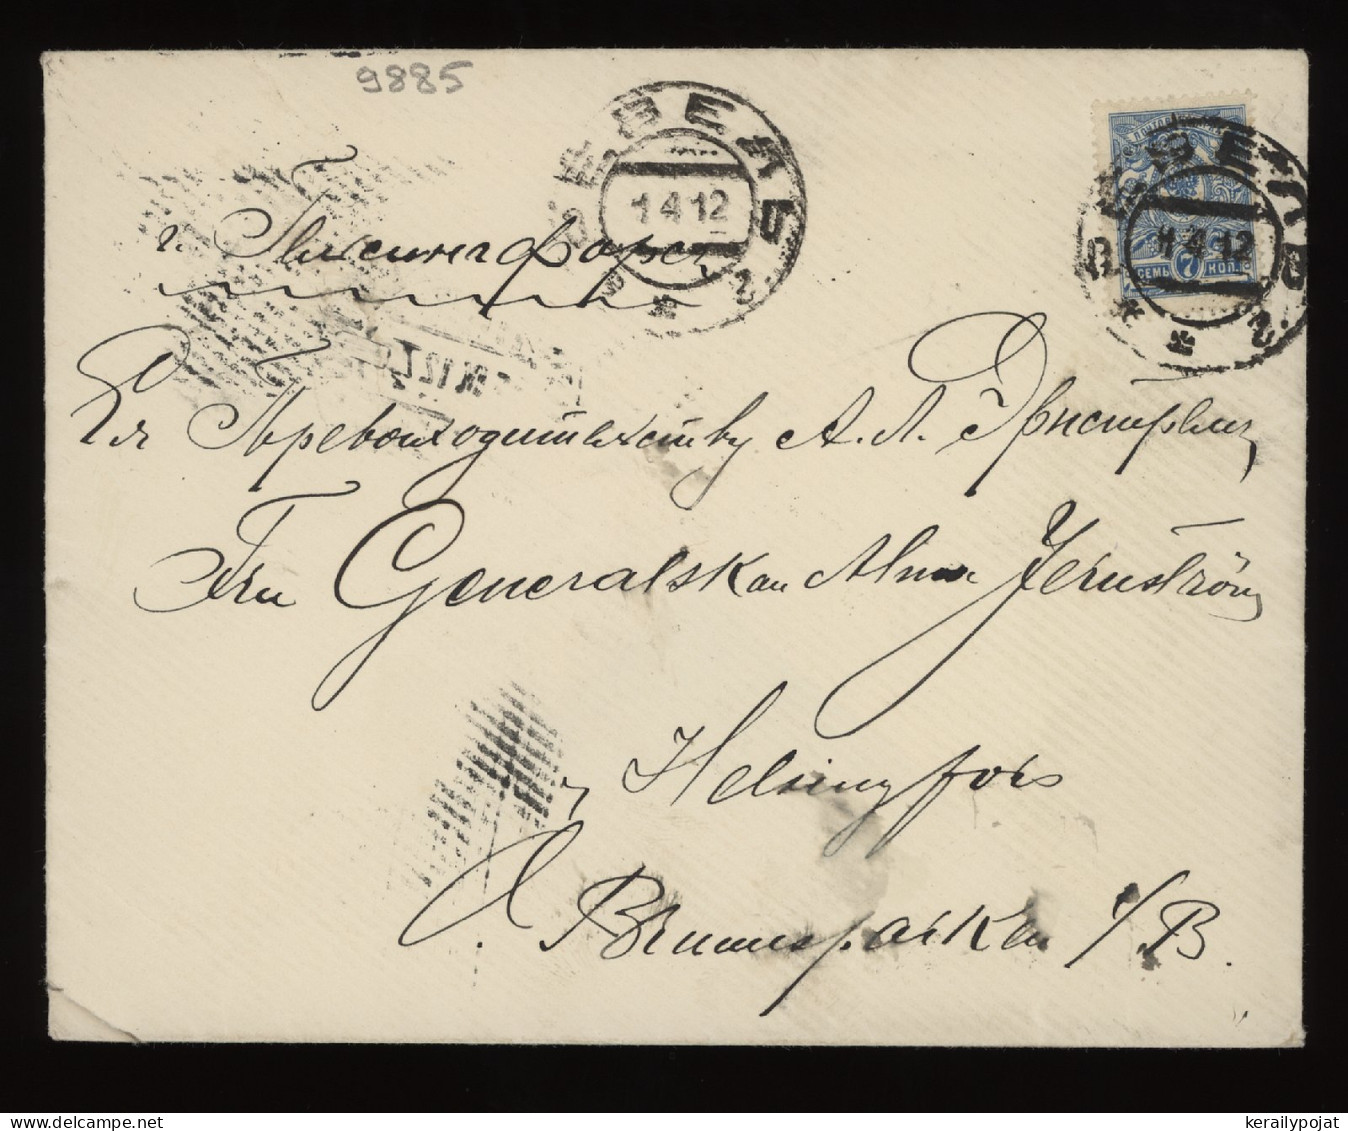 9885
РЕВЕЛЬ
1 4 12
ПОЧТОВАЯ
РЕВЕЛЬ
1 4 12
СЕМЬ 7 КОП.
г. Гельсингфорсъ
Ея Превосходительству А. Л. Эрнстремъ
Fru Generalskan Alma Jernström
Helsingfors
Ö. Brunnsparken 1/B.
kerailypojat